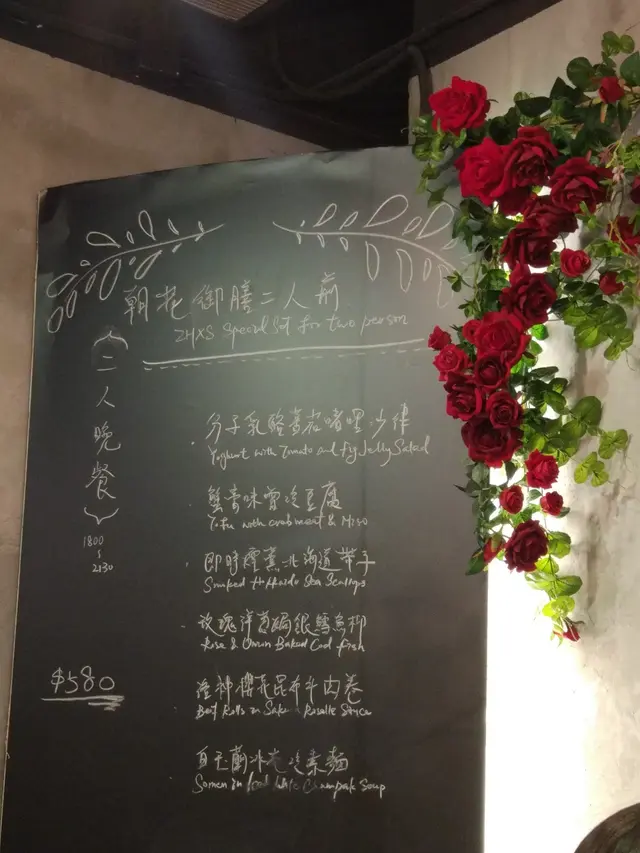 朝花御膳二人前
ZHXS Special Set for two person
二人晚餐
1800
~
2130
$580
分子乳酪蕃茄啫喱沙律
Yoghurt with Tomato and fig Jelly Salad
蟹膏味曾冷豆腐
Tofu with crab meat & Miso
即時煙熏北海道帶子
Smoked Hokkaido Sea Scallops
玫瑰洋蔥焗銀鱈魚柳
Rose & Onion Baked Cod fish
洛神櫻花昆布牛肉卷
Beef Rolls in Sakura Roselle Sauce
白玉蘭冰花冷素麵
Somen in White Champak Soup